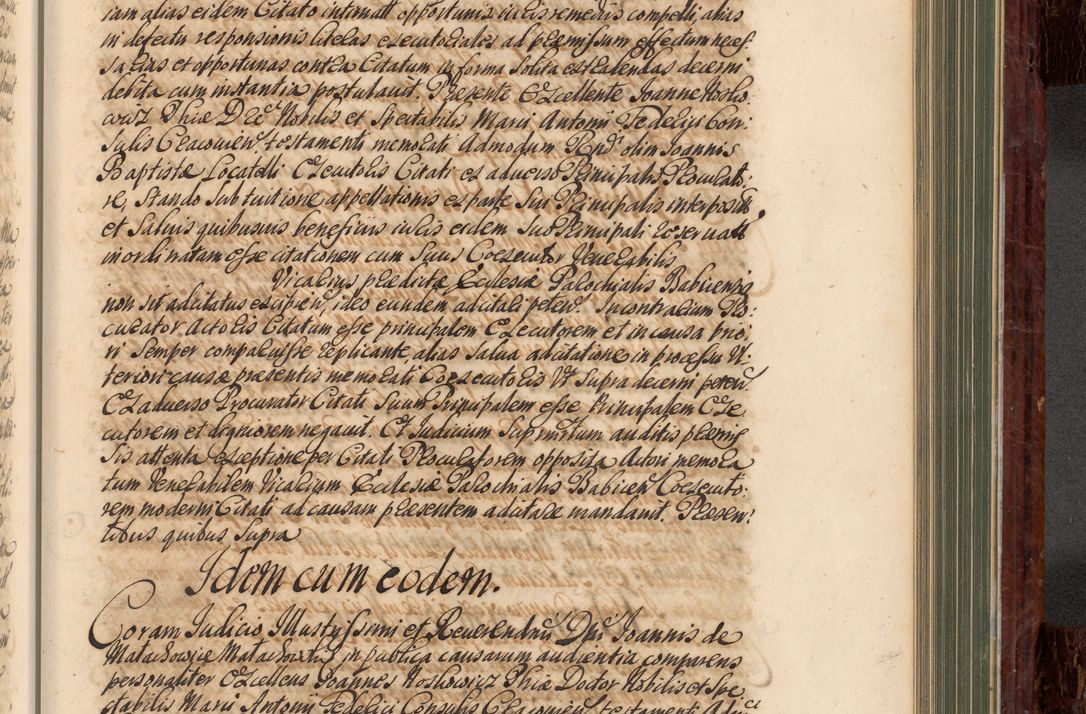 iam alias eidem Citato intimatt opportunis iuris remediis compelli, alias
in defectu responsionis literas executoriales ad praemissum effectum neces
sarias et opportunas contra Citatum in forma solita extradendas decerni
debita cum instantia postulavit. Praesente Excellente Joanne Roslio
wicz Phiae D re Nobilis et Spectabilis Marci Antonii Federici Con
sulis Cracovien testamenti memorati Admodum Rnd olim Joannis
Baptista Locatelli Executoris Citati ex adverso Principalis Procurato
re, Stando sub tuitione appellationis ex parte Sui Principalis interposit
et Salvis quibusvis beneficiis iuris eidem Suo Principali reservatt
inordinatam esse citationem cum Suus Coexecutor Venerabilis
Vicarius praedictae Ecclesiae Parochialis Babicensis
non sit adcitatus excipien, ideo eundem adcitari peten. In contrarium Pro
curator Actoris Citatum esse principalem Executorem et in causa prio
ri Semper comparuisse replicante, alias salva adcitatione in processu Ul
teriori causae praesentis memorati Coexecutoris Ut Supra decerni peten
Ex adverso Procurator Citati Suum Principalem esse Principalem Exe
cutorem et digniorem negavit. Et Judicium Supremum auditis praemis
sis attenta exceptione per Citati Procuratorem opposita Actori memora
tum Venerabilem Vicarium Ecclesiae Parochialis Babicen Coexecuto
rem moderni Citati ad causam praesentem adcitare mandavit. Praesen
tibus quibus Supra
Idem cum eodem.
Coram Judicio Illustrissimi et Reverendmi Dni Joannis de
Małachowice Małachowski in publica causarum audientia comparens
personaliter Excellens Joannes Roslowicz Phiae Doctor Nobilis et Spe
ctabilis Marci Antonii Federici Consulis Cracovien testamenti